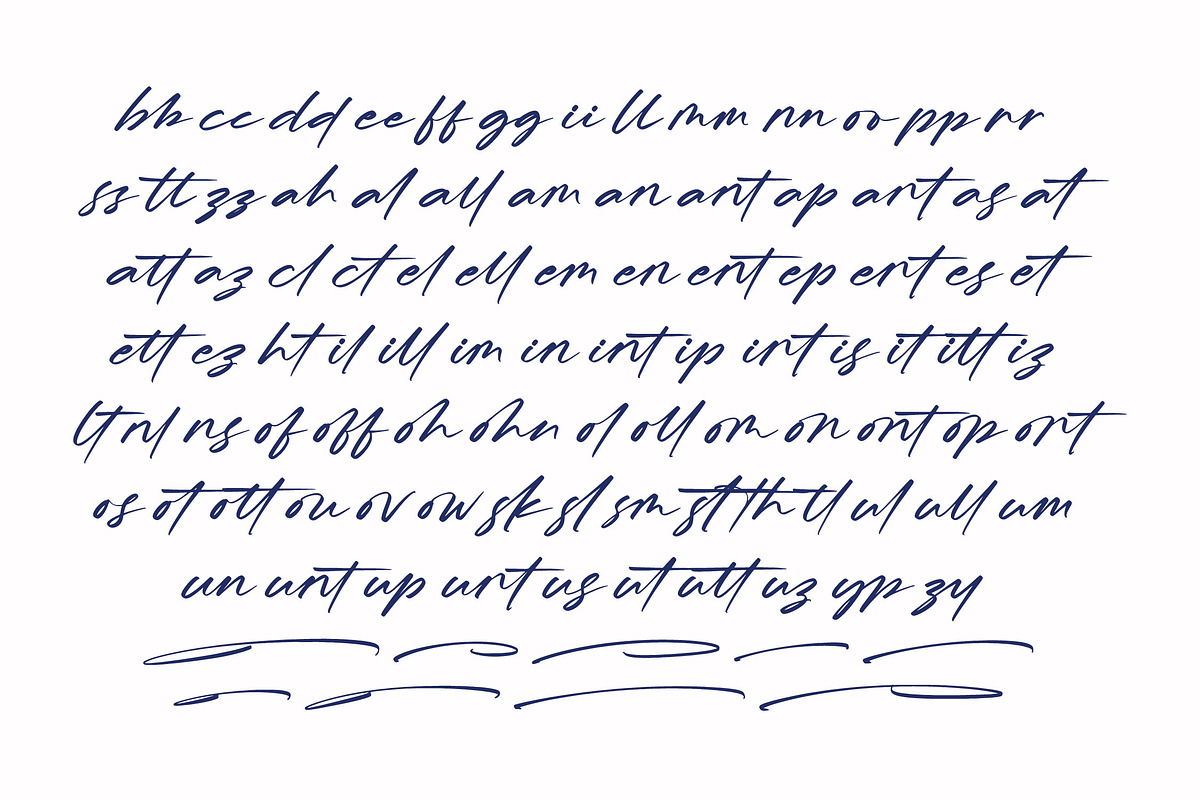 bb cc dd ee ff gg ii ll mm nn oo pp rr
ss tt zz ah al all am an ant ap art as at
att az cl ct el ell em en ent ep ert es et
ett ez ht il ill im in int ip irt is it itt iz
lt rl rs of off oh ohn ol oll om on ont op ort
os ot ott ou ov ow sk sl sm st th tl ul ull um
un unt up urt us ut utt uz yp zy